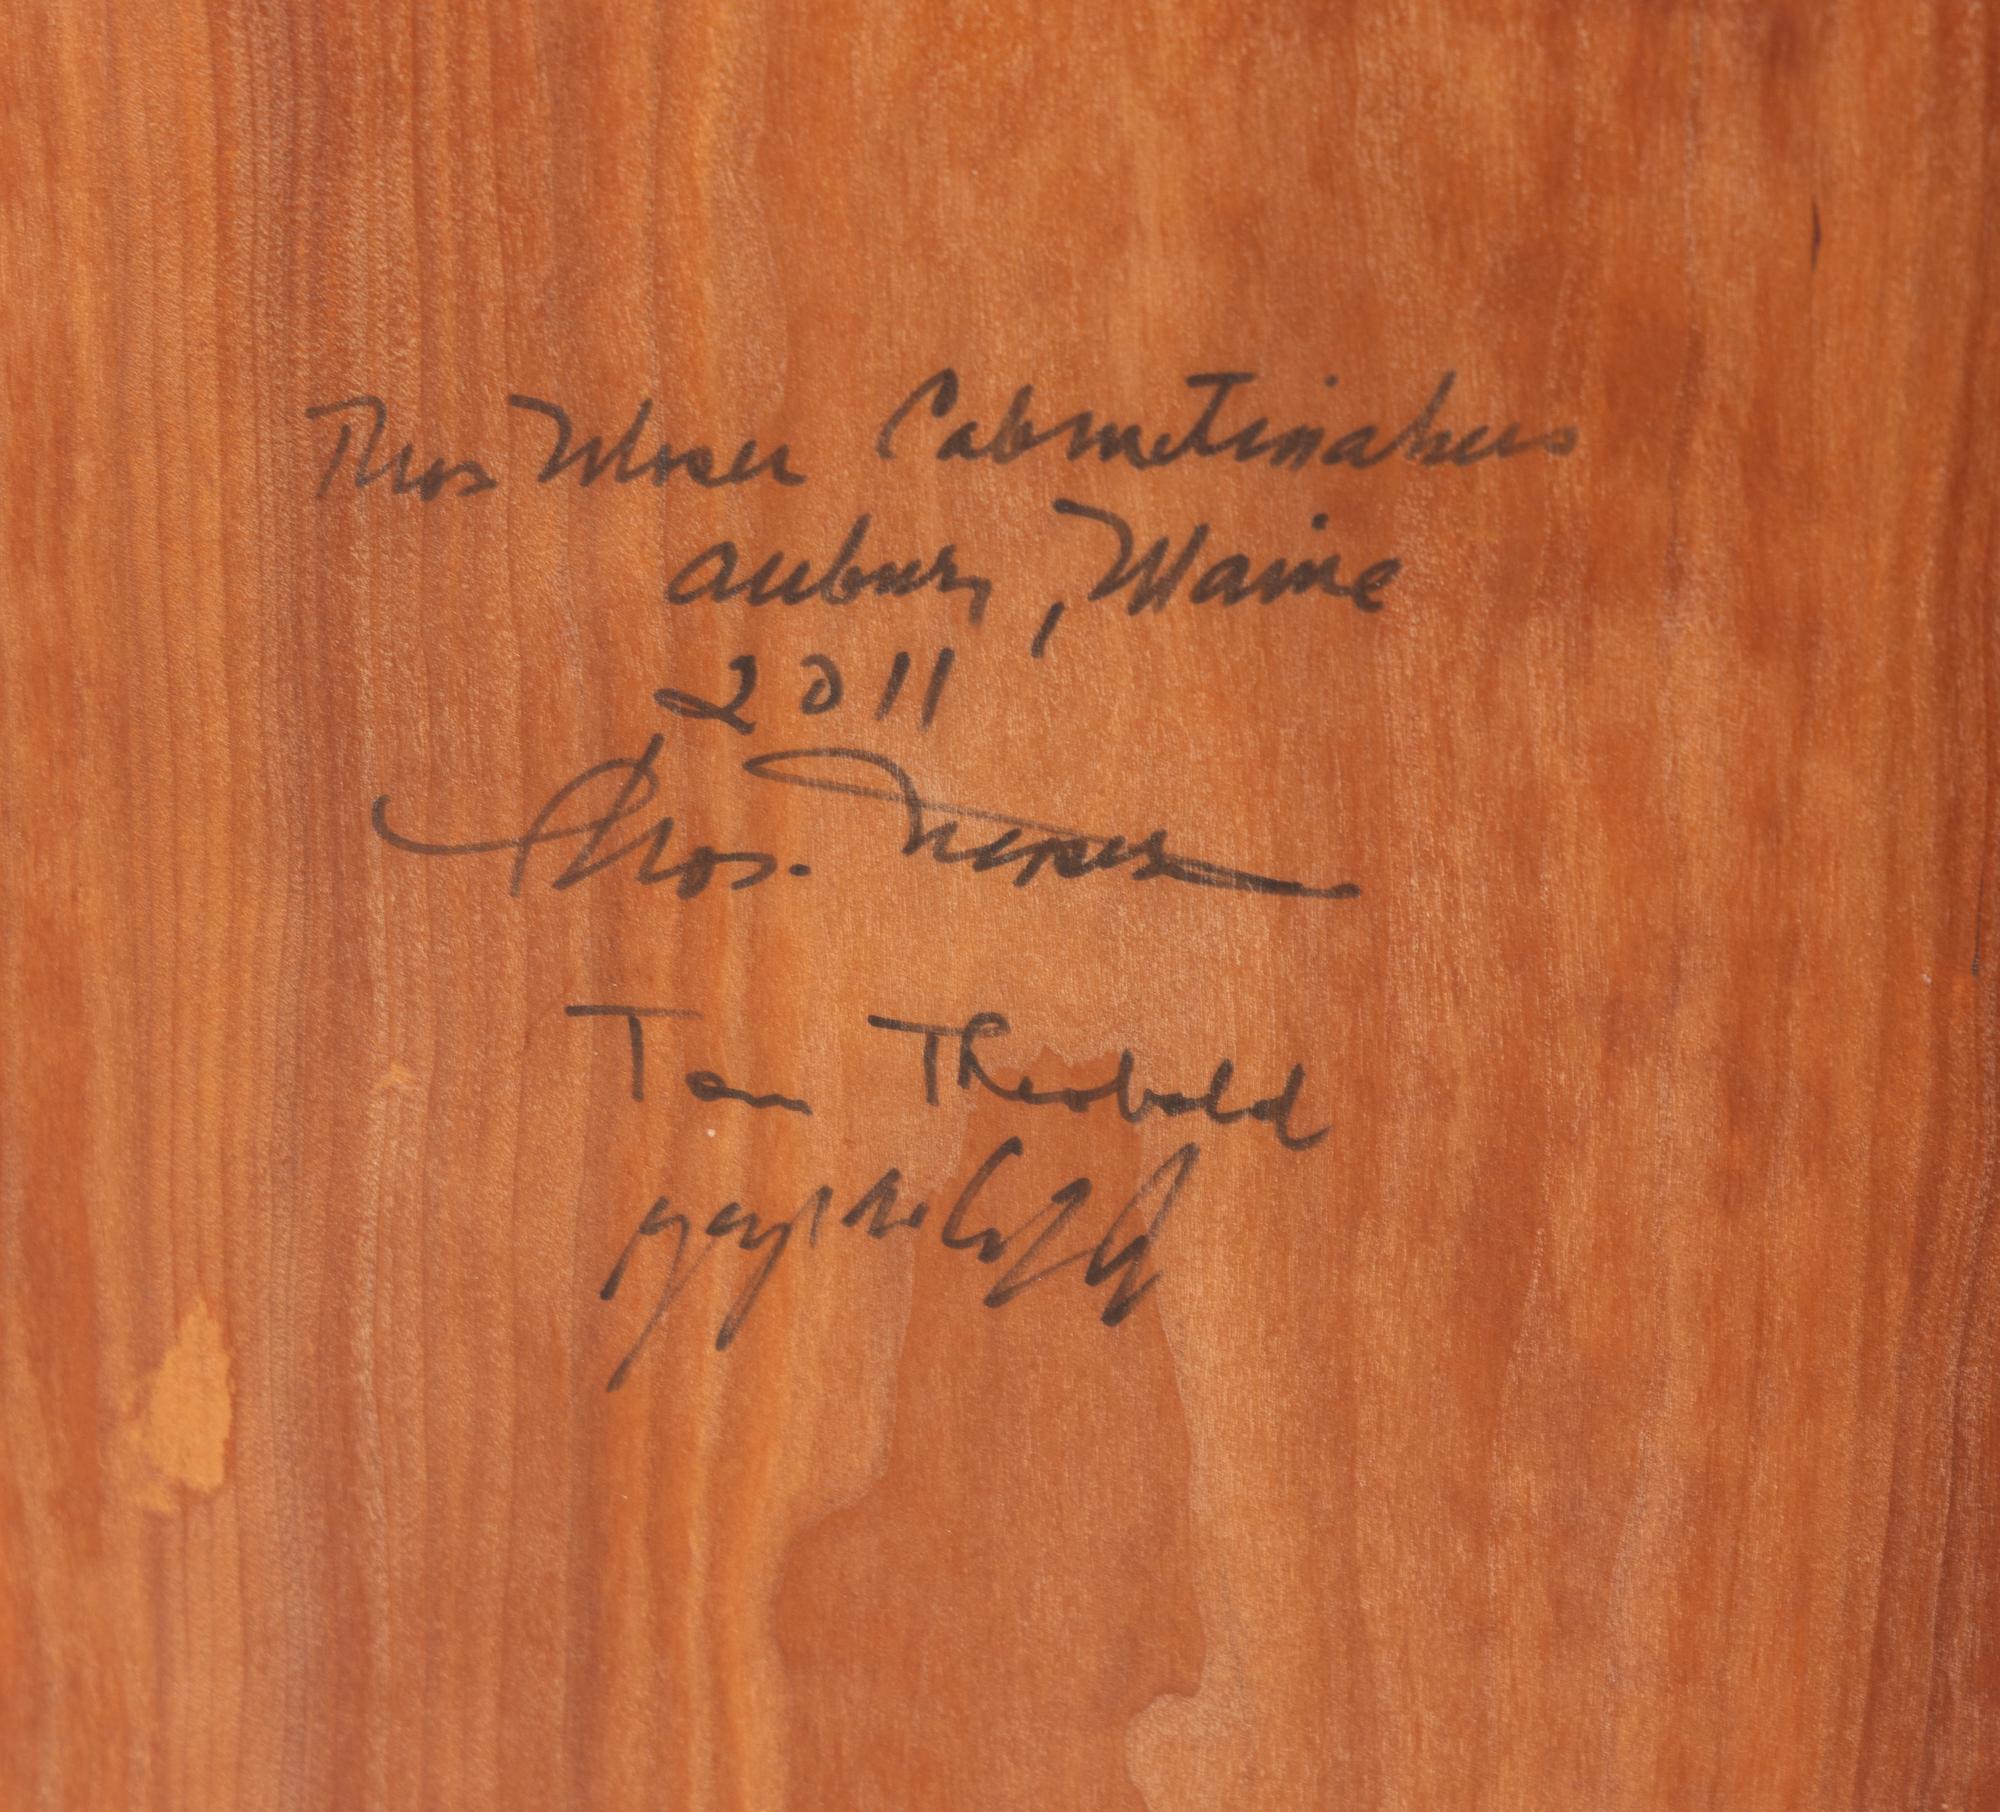 Thos Moser Cabinetmakers
Auburn, Maine
2011
Thos. Moser
Tom Theobald